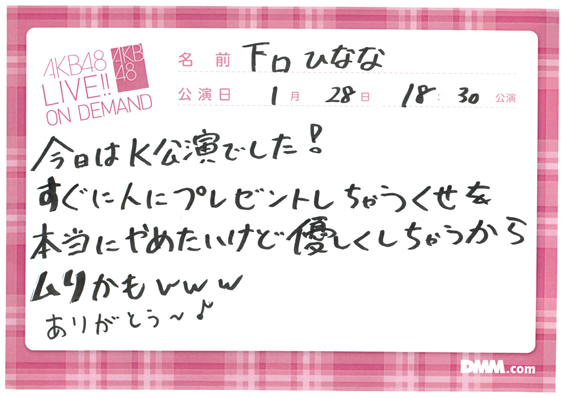 AKB48
LIVE!!
ON DEMAND
AKB
48
名前 下口ひなな
公演日 1月 28日 18:30 公演
今日はK公演でした!
すぐに人にプレゼントしちゃうくせを
本当にやめたいけど優しくしちゃうから
ムリかもwww
ありがとう〜♪
DMM.com